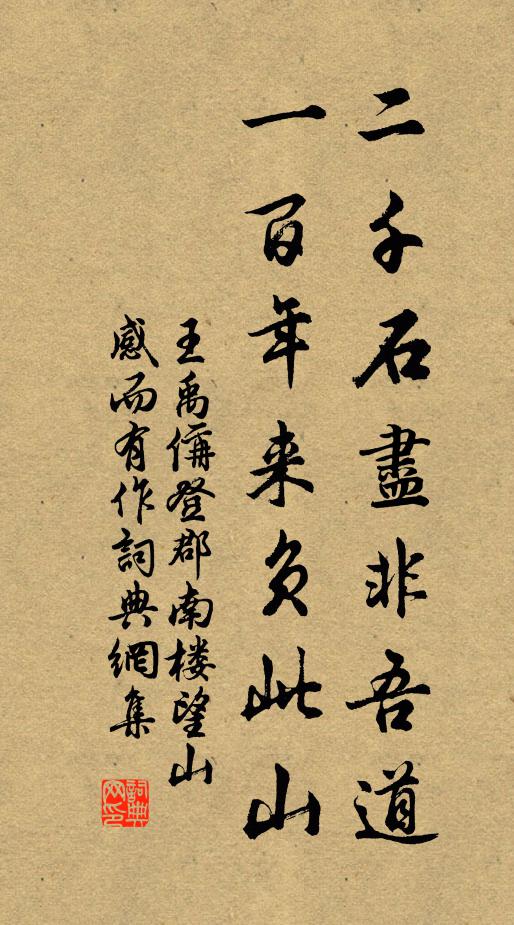 二千石盡非吾道
一百年来負此山
王禹偁登郡南楼望山
感而有作詞典網集
詞典
网印